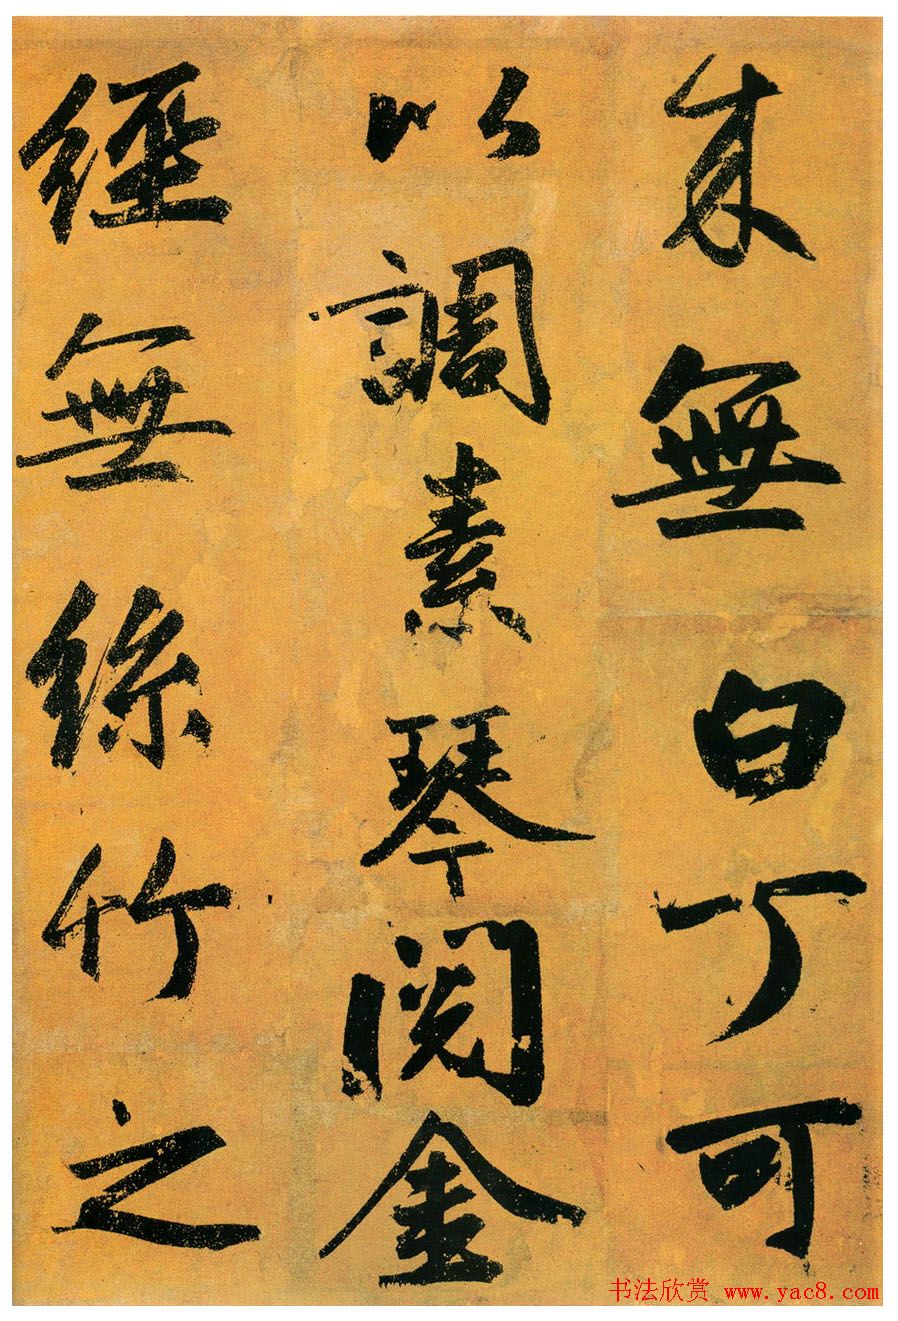 来無白丁可
以調素琴閱金
經無絲竹之
书法欣赏 www.yac8.com